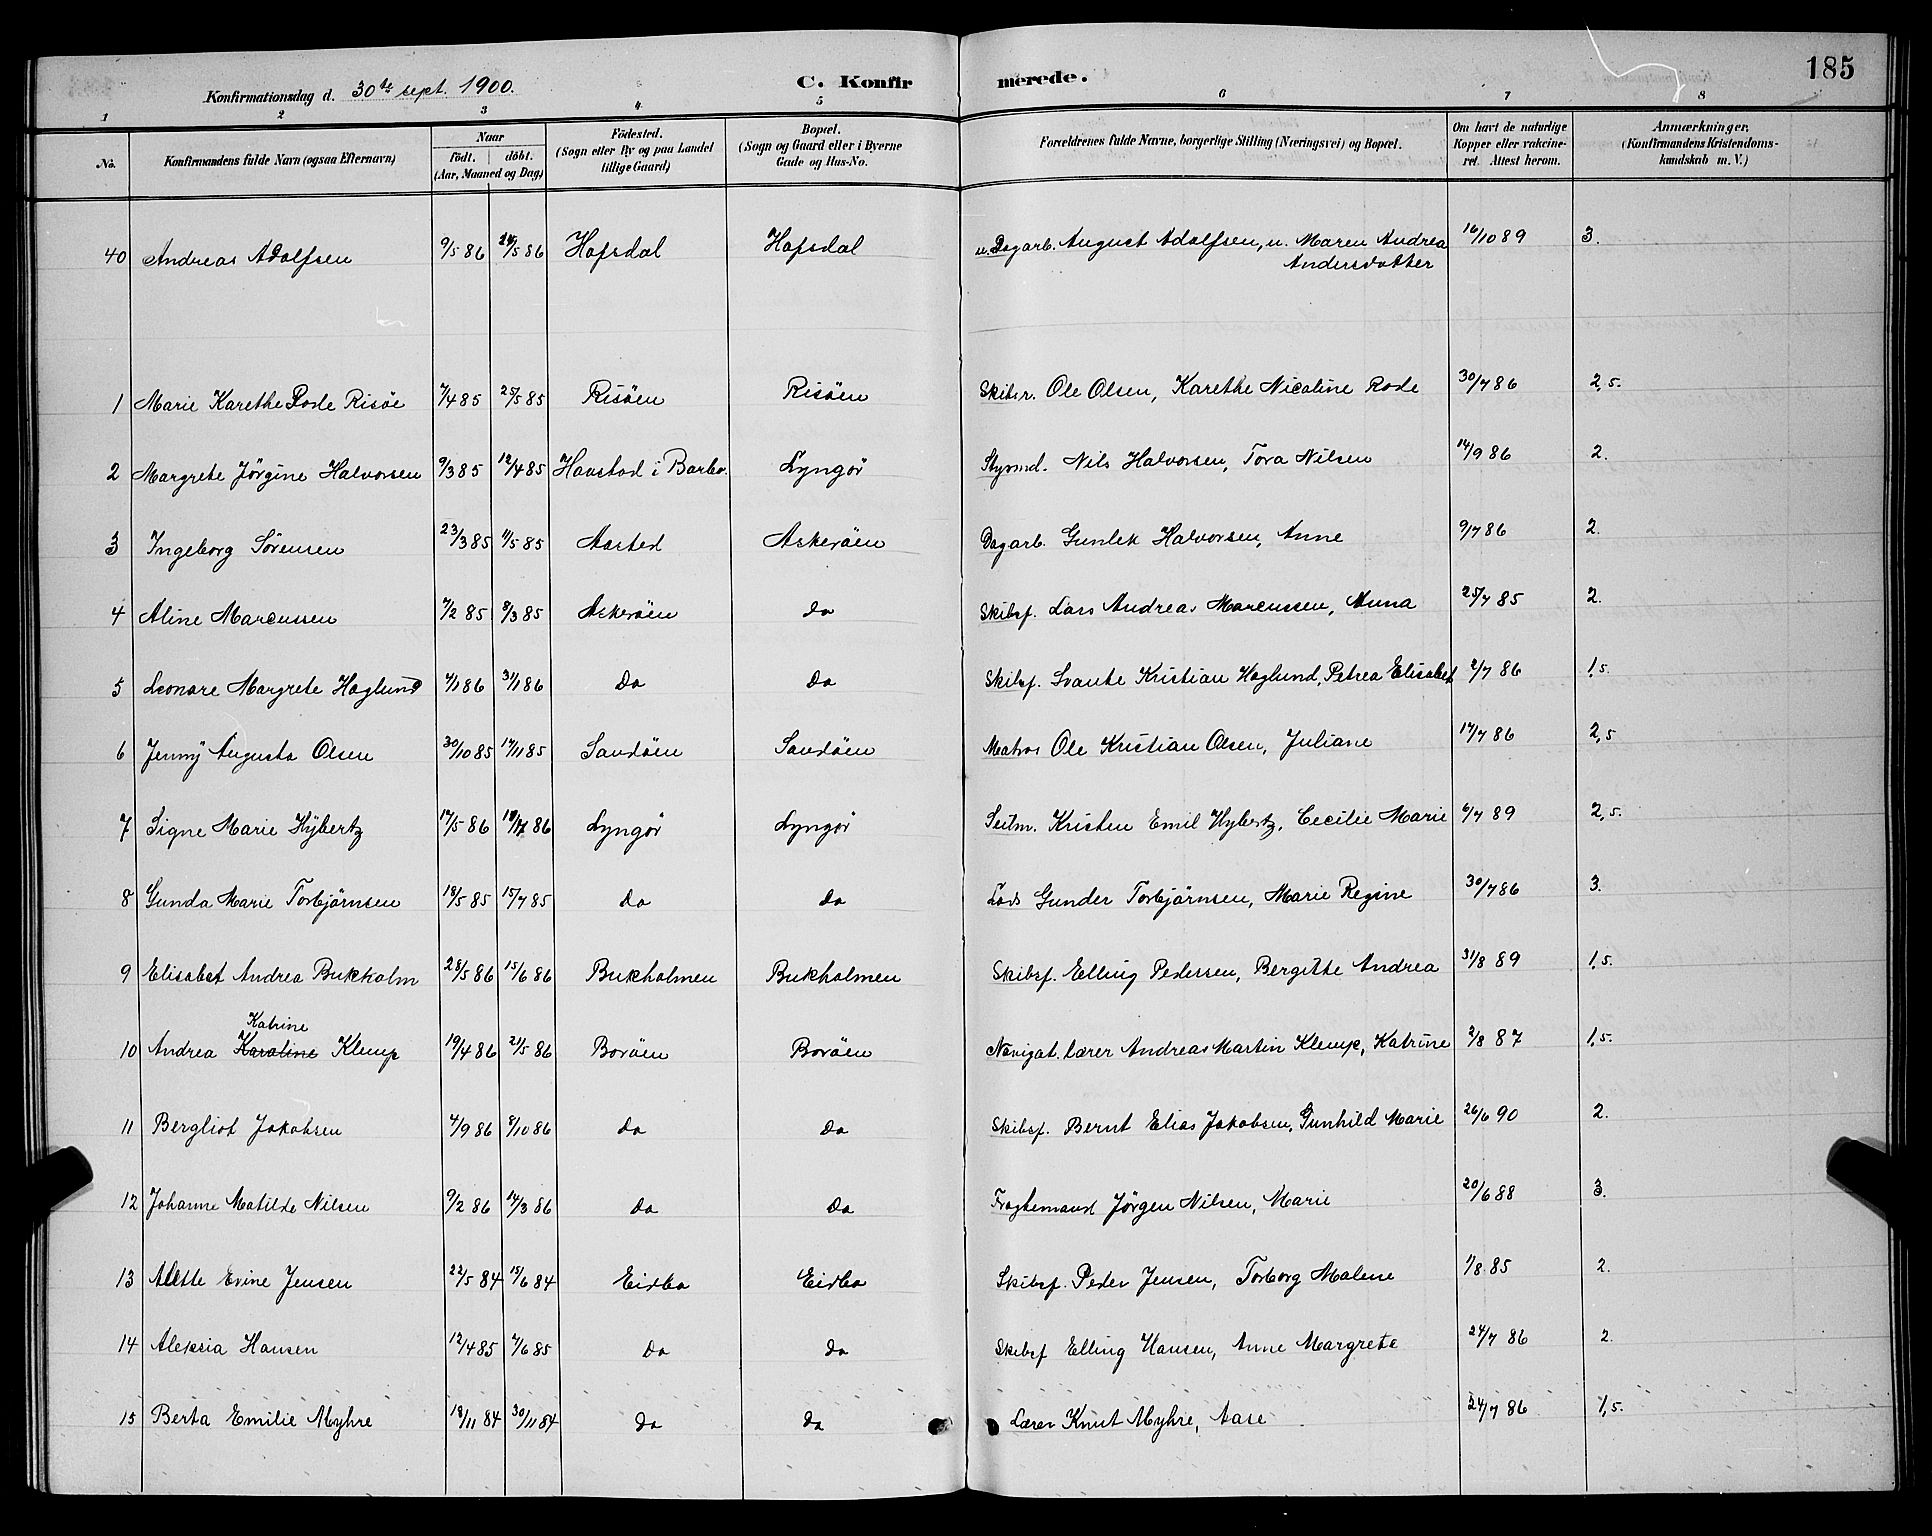 185
Konfirmationsdag d. 30te sept. 1900. C. Konfirmerede.
1 2 3 4 5 6 7 8
No. Konfirmandens fulde Navn (ogsaa Efternavn) Naar födt. döbt. (Aar, Maaned og Dag) Födested. (Sogn eller By og paa Landet tillige Gaard) Bopæl. (Sogn og Gaard eller i Byerne Gade og Hus-No. Forældrenes fulde Navne, borgerlige Stilling (Næringsvei) og Bopæl. Om havt de naturlige Kopper eller vakcineret. Attest herom. Anmærkninger, (Konfirmandens Kristendomskundskab m. V.)
40 Andreas Adolfsen 9/5 86 24/5 86 Hafsdal Hafsdal u. Dagarb. August Adolfsen, u. Maren Andrea Andersdatter 16/10 89 3.
1 Marie Karethe Rode Risöe 7/4 85 25/5 85 Risöen Risöen Skibsr. Ole Olsen, Karethe Nicoline Rode 30/7 86 2,5.
2 Margrete Jörgine Halvorsen 9/3 85 12/4 85 Havstad i Barbo. Lyngör Styrmd. Nils Halvorsen, Tora Nilsen 14/9 86 2.
3 Ingeborg Sörensen 23/3 85 11/5 85 Aasted Askeröen Dagarb. Gunlek Halvorsen, Anne 9/7 86 2.
4 Aline Marcussen 7/2 85 8/3 85 Askeröen do Skibsf. Lars Andreas Marcussen, Anna 25/7 85 2.
5 Leonore Margrete Haglund 4/1 86 31/1 86 do do Skibsf. Svante Kristian Haglund, Petrea Elisabet 2/7 86 1,5.
6 Jenny Augusta Olsen 30/10 85 17/11 85 Sandöen Sandöen Matros Ole Kristian Olsen, Juliane 17/7 86 2,5
7 Signe Marie Hÿbertz 17/5 86 18/7 86 Lyngör Lyngör Seilm. Kristen Emil Hybertz, Cecilie Marie 6/7 89 2,5.
8 Gunda Marie Torbjörnsen 18/5 85 15/7 85 do do Lods Gunder Torbjörnsen, Marie Regine 30/7 86 3.
9 Elisabet Andrea Bukholm 28/5 86 15/6 86 Bukholmen Bukholmen Skibsf. Elling Pedersen, Bergitte Andrea 31/8 89 1,5.
Katrine
10 Andrea Karoline Klemp 19/4 86 21/5 86 Boröen Boröen Navigat. lærer Andreas Martin Klemp, Katrine 2/8 87 1,5.
11 Bergliot Jakobsen 4/9 86 8/10 86 do do Skibsf. Bernt Elias Jakobsen, Gunhild Marie 26/6 90 2.
12 Johanne Matilde Nilsen 9/2 86 14/3 86 do do Fragtemand Jörgen Nilsen, Marie 20/6 88 3.
13 Alette Evine Jensen 22/5 84 15/6 84 Eidbo Eidbo Skibsf. Peder Jensen, Torborg Malene 1/8 85 2.
14 Aleksia Hansen 12/4 85 7/6 85 do do Skibsf Elling Hansen, Anne Margrete 24/7 86 2.
15 Berta Emilie Myhre 18/11 84 30/11 84 do do Lærer Knut Myhre, Aase 24/7 86 1,5.